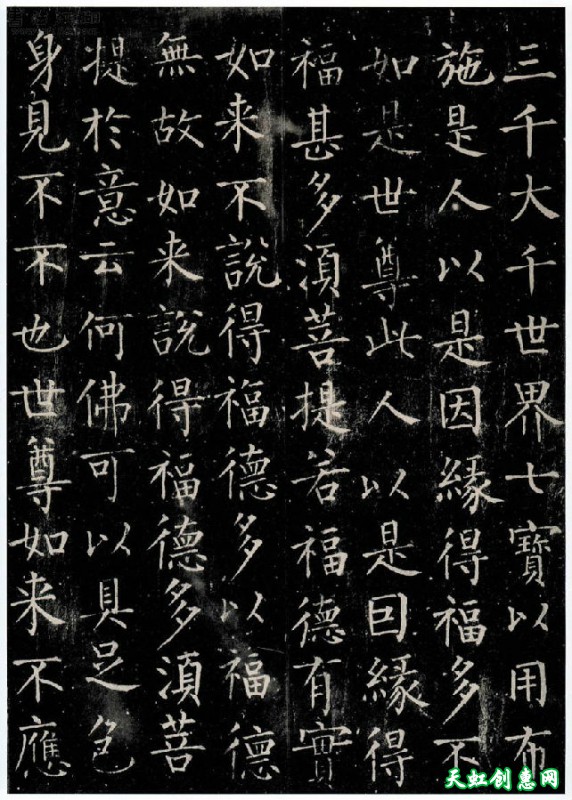 三千大千世界七寶以用布
施是人以是因緣得福多不
如是世尊此人以是囙緣得
福甚多湏菩提若福德有實
如来不說得福德多以福德
無故如来說得福德多湏菩
提於意云何佛可以具足色
身見不不也世尊如来不應
天虹创惠网